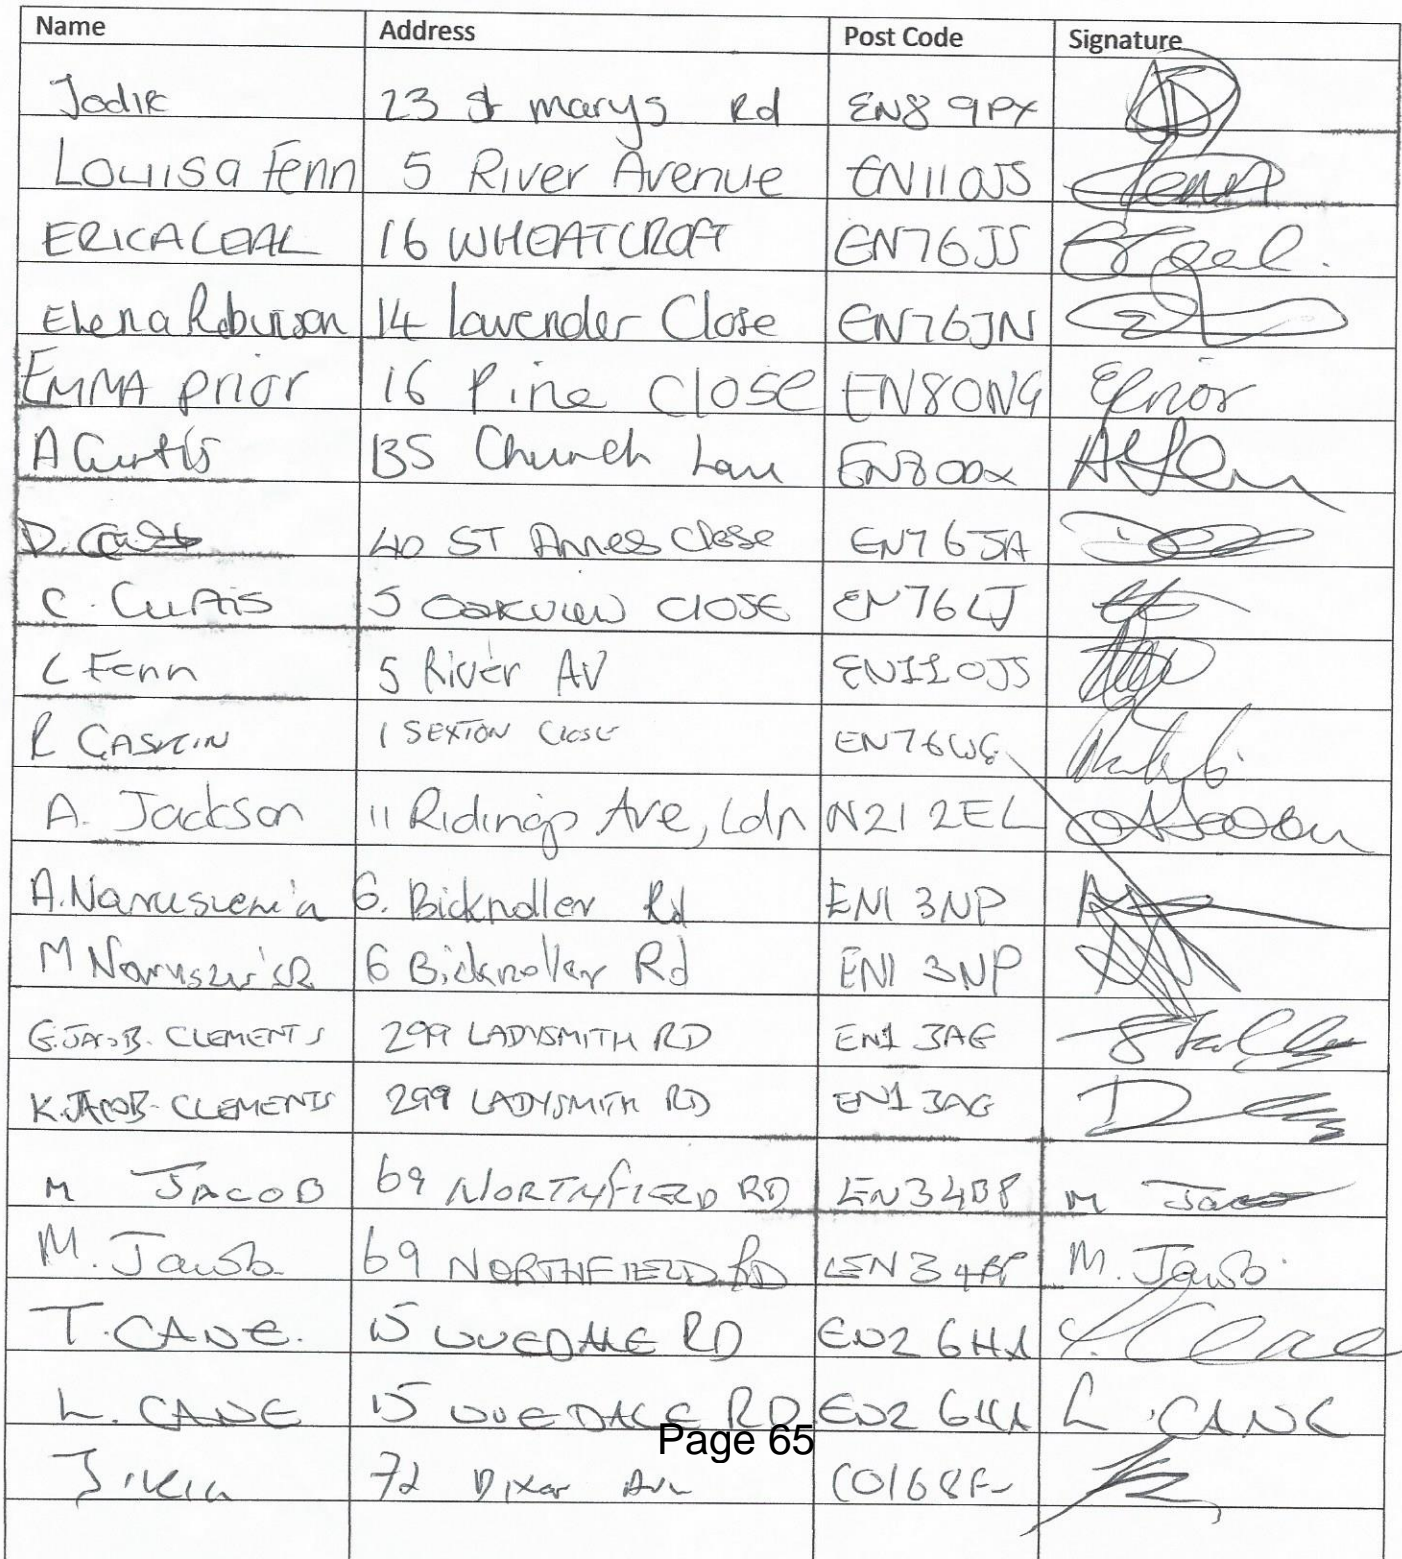 Name Address Post Code Signature
Jodie 23 St marys Rd EN8 9PX
Louisa Fenn 5 River Avenue EN11 0JS Fenn
ERICA 16 WHEATCROFT EN7 6JS
Elena Robinson 14 lavender Close EN7 6JN
EMMA prior 16 Pine Close EN8 0NG EPrior
A Curtis 135 Church Lane EN8 0DX
D. 40 ST Annes Close EN7 6JA
C. Curtis 5 OAKVIEW CLOSE EN7 6LJ
L Fenn 5 River AV EN11 0JS
R GASKIN 1 SEXTON CLOSE EN7 6WG
A. Jackson 11 Ridings Ave, Ldn N21 2EL
A. 6. Bicknoller Rd EN1 3NP
M 6 Bicknoller Rd EN1 3NP
G. JACOB-CLEMENTS 299 LADYSMITH RD EN1 3AG
K. JACOB-CLEMENTS 299 LADYSMITH RD EN1 3AG
M JACOB 69 NORTHFIELD RD EN3 4BP M Jacob
M. Jacob 69 NORTHFIELD RD EN3 4BP M. Jacob
T. CANE. 15 UVEDALE RD EN2 6HA T. Cane
L. CANE 15 UVEDALE RD EN2 6HA L. CANE
72 Dixon Ave CO16 8F
Page 65